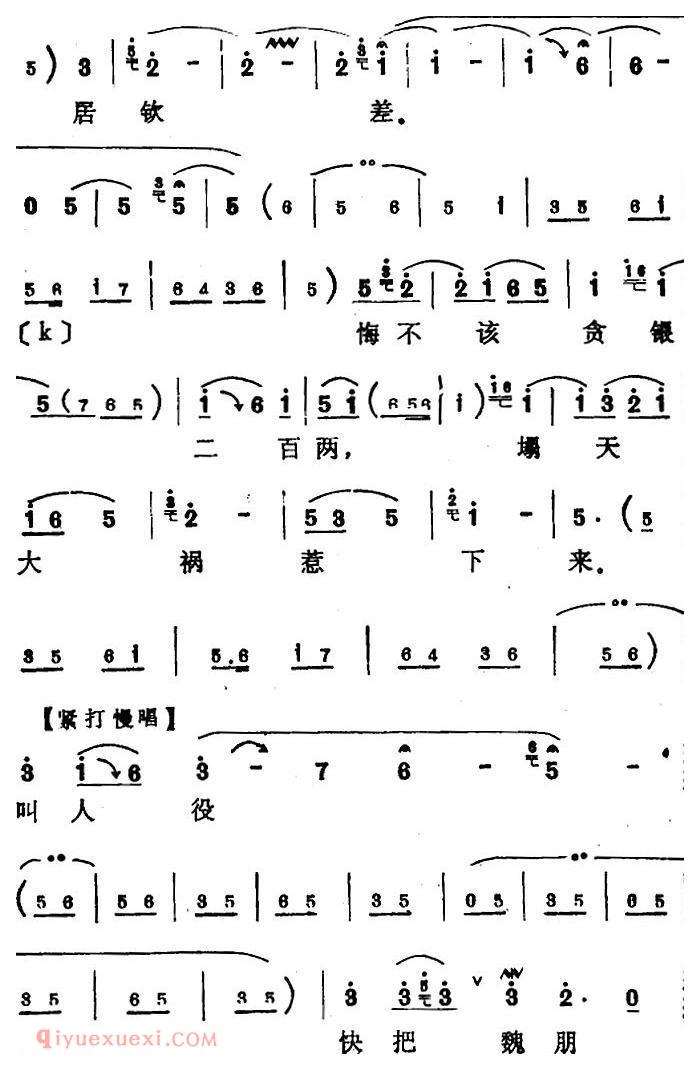 5 ) 3 | 5 2 - | 2 - | 2 3 1 | 1 - | 1 6 | 6 -
居 钦 差。
0 5 | 5 3 5 | 5 ( 6 | 5 6 | 5 i | 3 5 6 i
5 6 i 7 | 6 4 3 6 | 5 ) 5 3 2 | 2 i 6 5 | i i6 i
〔k〕 悔 不 该 贪 银
5 ( 7 6 5 ) | i 6 i | 5 i ( 6 5 6 | i ) i6 i | i 3 2 i
二 百 两, 塌 天
i 6 5 | 3 2 - | 5 3 5 | 2 i - | 5 . ( 5
大 祸 惹 下 来。
3 5 6 i | 5 . 6 i 7 | 6 4 3 6 | 5 6 )
【紧打慢唱】
3 i 6 3 - 7 6 - 6 5 -
叫 人 役
( 5 6 | 5 6 | 3 5 | 6 5 | 3 5 | 0 5 | 3 5 | 6 5
3 5 | 6 5 | 3 5 ) | 3 3 5 3 ∨ 3 2 . 0
快 把 魏 朋
qiyuexuexi.com